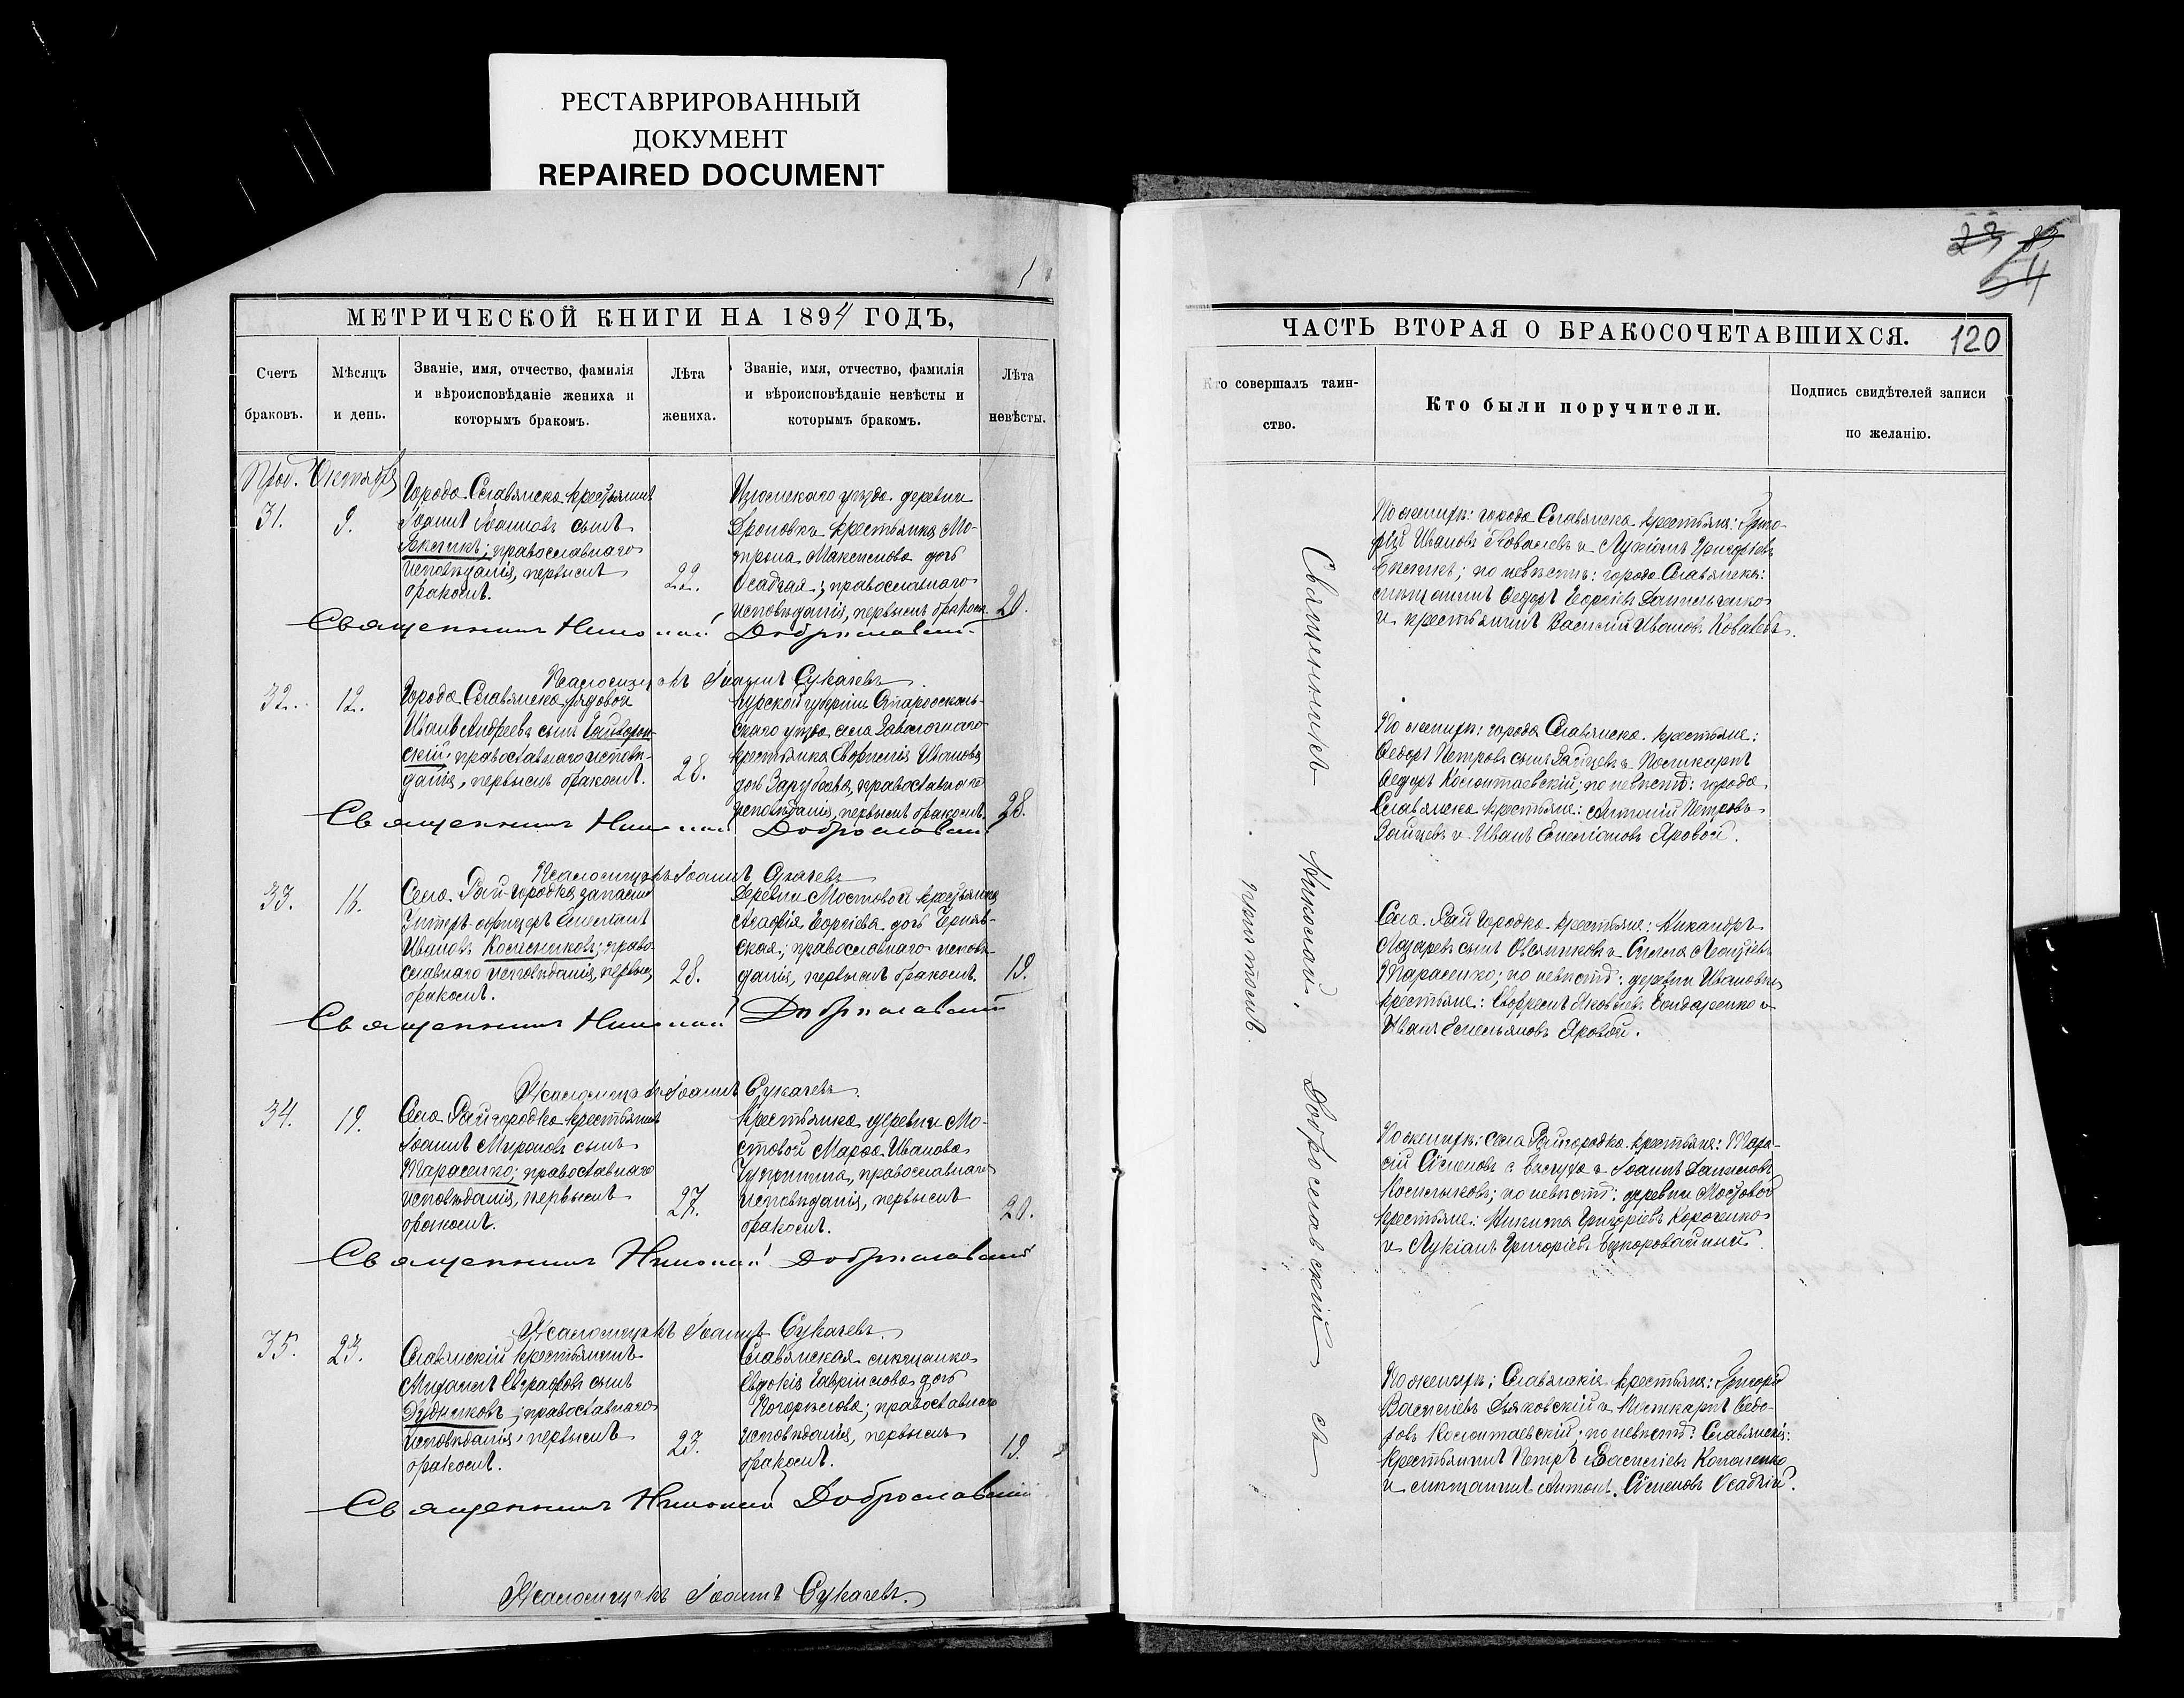 РЕСТАВРИРОВАННЫЙ
ДОКУМЕНТ
REPAIRED DOCUMENT
МЕТРИЧЕСКОЙ КНИГИ НА 1894 ГОДЪ,
Счетъ браковъ.
Мѣсяцъ и день.
Званіе, имя, отчество, фамилія
и вѣроисповѣданіе жениха и
которымъ бракомъ.
Лѣта жениха.
Званіе, имя, отчество, фамилія
и вѣроисповѣданіе невѣсты и
которымъ бракомъ.
Лѣта невѣсты.
Октябрь
31.
9.
Города Славянска крестьянинъ
Іоаннъ Іоанновъ сынъ
православнаго
исповѣданія, первымъ
бракомъ.
22.
Изюмскаго уѣзда деревни
крестьянка Мо-
трона Максимова дочь
Осадчая; православнаго
исповѣданія, первымъ бракомъ.
20.
Священникъ Николай Доброславскій
Псаломщикъ Іоаннъ Сукачевъ
32.
12.
Города Славянска рядовой
Иванъ Андреевъ сынъ Гайворон-
скій; православнаго исповѣ-
данія, первымъ бракомъ.
28.
Курской губерніи Староосколь-
скаго уѣзда села
крестьянка Ивановa
дочь Зарубаева, православнаго
исповѣданія, первымъ бракомъ.
28.
Священникъ Николай Доброславскій
Псаломщикъ Іоаннъ Сукачевъ
33.
16.
Села Рай-Городка запасной
Унтеръ-офицеръ Емеліанъ
Ивановъ Колесниковъ; право-
славнаго исповѣданія, первымъ
бракомъ.
28.
Деревни Мостовой крестьянка
Агафія Георгіева дочь Черняв-
ская; православнаго исповѣ-
данія, первымъ бракомъ.
19.
Священникъ Николай Доброславскій
Псаломщикъ Іоаннъ Сукачевъ.
34.
19.
Села Райгородка крестьянинъ
Іоаннъ Мироновъ сынъ
Тарасенко; православнаго
исповѣданія, первымъ
бракомъ.
27.
Крестьянка деревни Мо-
стовой Марѳа Иванова
Чуприна, православнаго
исповѣданія, первымъ
бракомъ.
20.
Священникъ Николай Доброславскій
Псаломщикъ Іоаннъ Сукачевъ.
35.
23.
Славянскій крестьянинъ
Михаилъ Евграфовъ сынъ
Дудниковъ; православнаго
исповѣданія, первымъ
бракомъ.
23.
Славянская мѣщанка
Евдокія Гавріилова дочь
Погорѣлова; православнаго
исповѣданія, первымъ
бракомъ.
19.
Священникъ Николай Доброславскій
Псаломщикъ Іоаннъ Сукачевъ.
54
ЧАСТЬ ВТОРАЯ О БРАКОСОЧЕТАВШИХСЯ.
120
Кто совершалъ таин-
ство.
Кто были поручители.
Подпись свидѣтелей записи
по желанію.
Священникъ Николай Доброславскій съ
причтомъ
По женихѣ: города Славянска крестьяне: Григо-
рій Ивановъ Ковалевъ и Лукіанъ Григорьевъ
по невѣстѣ: города Славянска:
мѣщанинъ Ѳедоръ Георгіевъ Данильченко
и крестьянинъ Василій Ивановъ Ковалевъ.
По женихѣ: города Славянска крестьяне:
Ѳеодоръ Петровъ сынъ Зайцевъ и Поликарпъ
Ѳедоровъ Колонтаевскій; по невѣстѣ: города
Славянска крестьяне: Антоній Петровъ
Зайцевъ и Иванъ Емеліановъ Яровой.
Села Рай Городка крестьяне: Никандръ
Лазаревъ сынъ Овсянниковъ и
Тарасенко; по невѣстѣ: деревни Ивановки
крестьяне: Яковлевъ Бондаренко и
Иванъ Емельяновъ Яровой.
По женихѣ: села Райгородка крестьяне: Тара-
сій и Іоаннъ Даниловъ
по невѣстѣ: деревни Мостовой
крестьяне: Никита Григоріевъ Короченко
и Лукіанъ Григоріевъ Безкоровайный.
По женихѣ: Славянскіе крестьяне: Григорій
Васильевъ Дьяковскій и Поликарпъ Ѳедо-
ровъ Колонтаевскій; по невѣстѣ: Славянскіе:
крестьянинъ Петръ Васильевъ Кононенко
и мѣщанинъ Антонъ Семеновъ Осадчій.